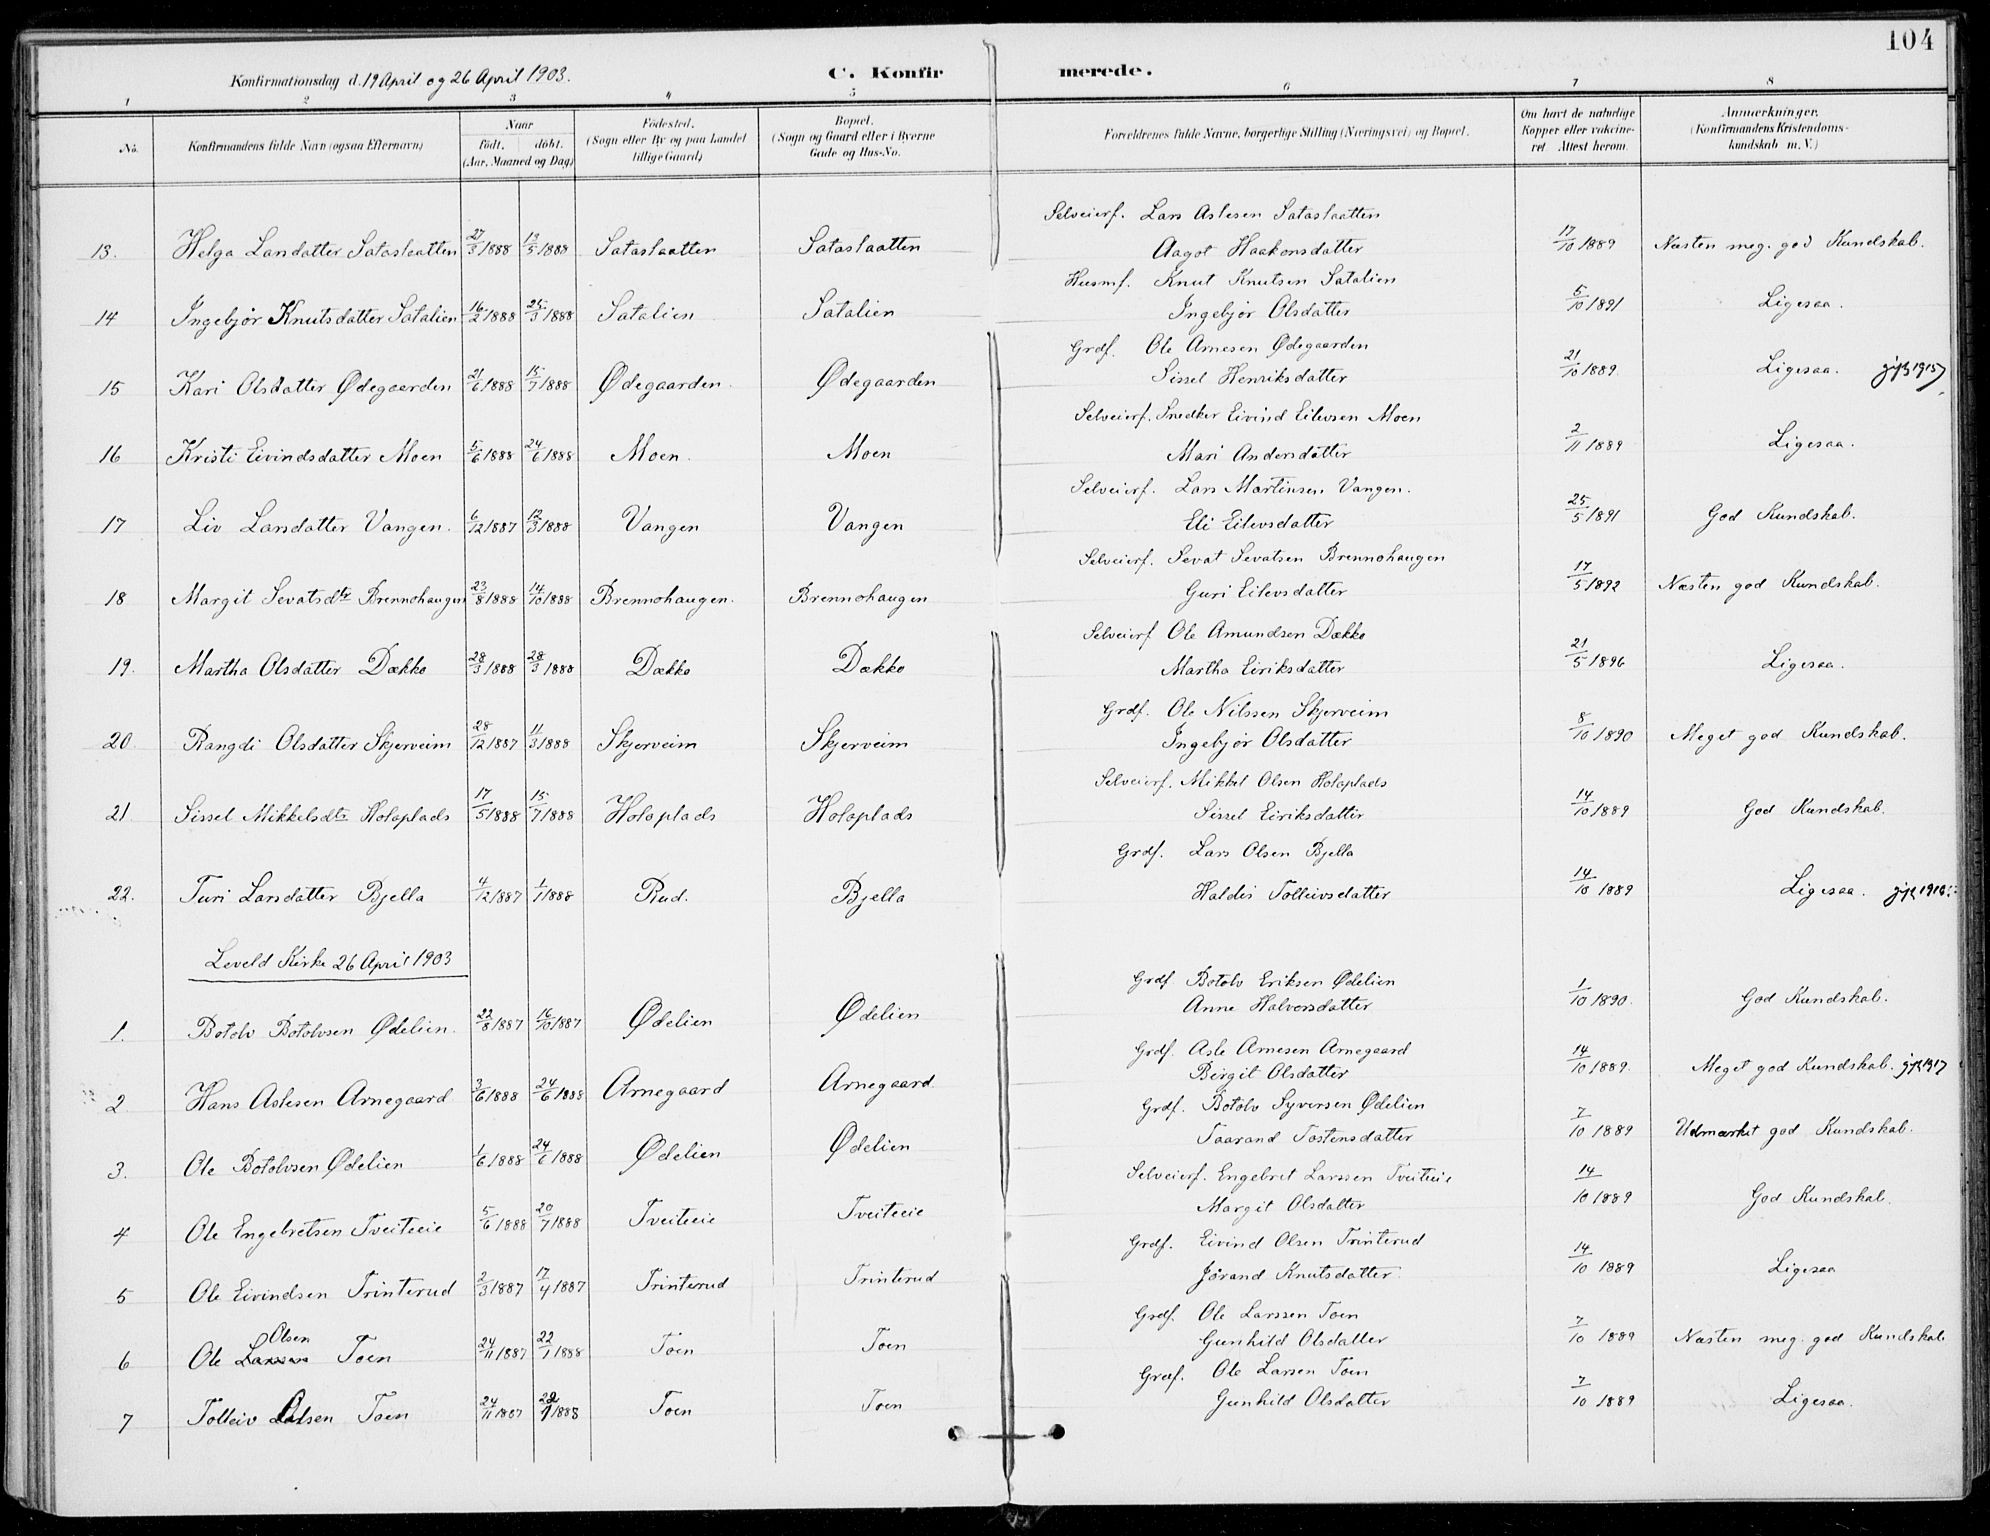 104
Konfirmationsdag d. 19 April og 26 April 1903.
C. Konfirmerede.
1 2 3 4 5 6 7 8
No. | Konfirmandens fulde Navn (ogsaa Efternavn) | Naar født. døbt. (Aar, Maaned og Dag) | Fødested. (Sogn eller By og paa Landet tillige Gaard) | Bopæl. (Sogn og Gaard eller i Byerne Gade og Hus-No. | Forældrenes fulde Navne, borgerlige Stilling (Næringsvei) og Bopæl. | Om havt de naturlige Kopper eller vaccineret Attest herom. | Anmerkninger. (Konfirmandens Kristendomskundskab m. V.)
Selveierf. Lars Aslesen Sataslaatten
13. Helga Larsdatter Sataslaatten 27/3 1888 13/5 1888 Sataslaatten Sataslaatten Aagot Haakonsdatter 17/10 1889 Næsten meg. god Kundskab.
Husmf. Knut Knutsen Satalien
14 Ingebjør Knutsdatter Satalien 16/2 1888 25/3 1888 Satalien Satalien Ingebjør Olsdatter 5/10 1891 Ligesaa.
Grdf. Ole Arnesen Ødegaarden
15 Kari Olsdatter Ødegaarden 21/6 1888 15/7 1888 Ødegaarden. Ødegaarden Sissel Henriksdatter 21/10 1889 Ligesaa. gift 1915
Selveierf. Snedker Eivind Eilevsen Moen
16 Kristi Eivindsdatter Moen 5/6 1888 24/6 1888 Moen. Moen Mari Andersdatter 2/11 1889 Ligesaa.
Selveierf. Lars Martinsen Vangen.
17 Liv Larsdatter Vangen. 6/12 1887 12/3 1888 Vangen Vangen Eli Eilevsdatter 25/5 1891 God Kundskab.
Selveierf. Sevat Sevatsen Brennohaugen
18 Margit Sevatsdtr Brennohaugen 23/8 1888 14/10 1888 Brennohaugen. Brennohaugen Guri Eilevsdatter 17/5 1892 Næsten god Kundskab.
Selveierf Ole Amundsen Dækko
19. Martha Olsdatter Dækko 28/3 1888 28/3 1888 Dækko Dækko Martha Eiriksdatter 21/5 1896 Ligesaa.
Grdf. Ole Nilssen Skjerveim
20 Rangdi Olsdatter Skjerveim 28/12 1887 11/3 1888 Skjerveim Skjerveim Ingebjør Olsdatter 8/10 1890 Meget god Kundskab.
Selveierf. Mikkel Olsen Holaplads
21. Sissel Mikkelsdtr Holaplads 17/5 1888 15/7 1888 Holaplads Holaplads Sissel Eiriksdatter 14/10 1889 God Kundskab.
Grdf. Lars Olsen Bjella
22. Turi Larsdatter Bjella 4/12 1887 1/1 1888 Rud. Bjella Haldis Tolleivsdatter 14/10 1889 Ligesaa.
Leveld Kirke 26 April 1903
Grdf Botolv Eriksen Ødelien
1. Botolv Botolvsen Ødelien. 22/8 1887 16/10 1887 Ødelien Ødelien Anne Halvorsdatter 1/10 1890. God Kundskab.
Grdf. Asle Arnesen Arnegaard
2 Hans Aslesen Arnegaard 3/6 1888 24/6 1888 Arnegaard Arnegaard Birgit Olsdatter 14/10 1889. Meget god Kundskab. gift 1917
Grdf. Botolv Syversen Ødelien
3. Ole Botolvsen Ødelien 1/6 1888 24/6 1888 Ødelien Ødelien Taarand Tostensdatter 7/10 1889 Udmærket god Kundskab.
Selveierf. Engebret Larssen Tveiteie
4 Ole Engebretsen Tveiteeie 5/6 1888 20/7 1888 Tveiteeie Tveiteeie Margit Olsdatter 14/10 1889 God Kundskab.
Grdf. Eivind Olsen Trinterud
5 Ole Eivindsen Trinterud 2/3 1887 17/4 1887 Trinterud Trinterud Jørand Knutsdatter 14/10 1889 Ligesaa
Grdf. Ole Larssen Toen
Olsen
6 Ole Larssen Toen 24/11 1887 22/1 1888 Toen Toen Gunhild Olsdatter 7/10 1889 Næsten meg. god Kundskab
Grdf. Ole Larsen Toen
7 Tolleiv Olsen Toen 24/11 1887 22/1 1888 Toen Toen Gunhild Olsdatter 7/10 1889 Ligesaa.